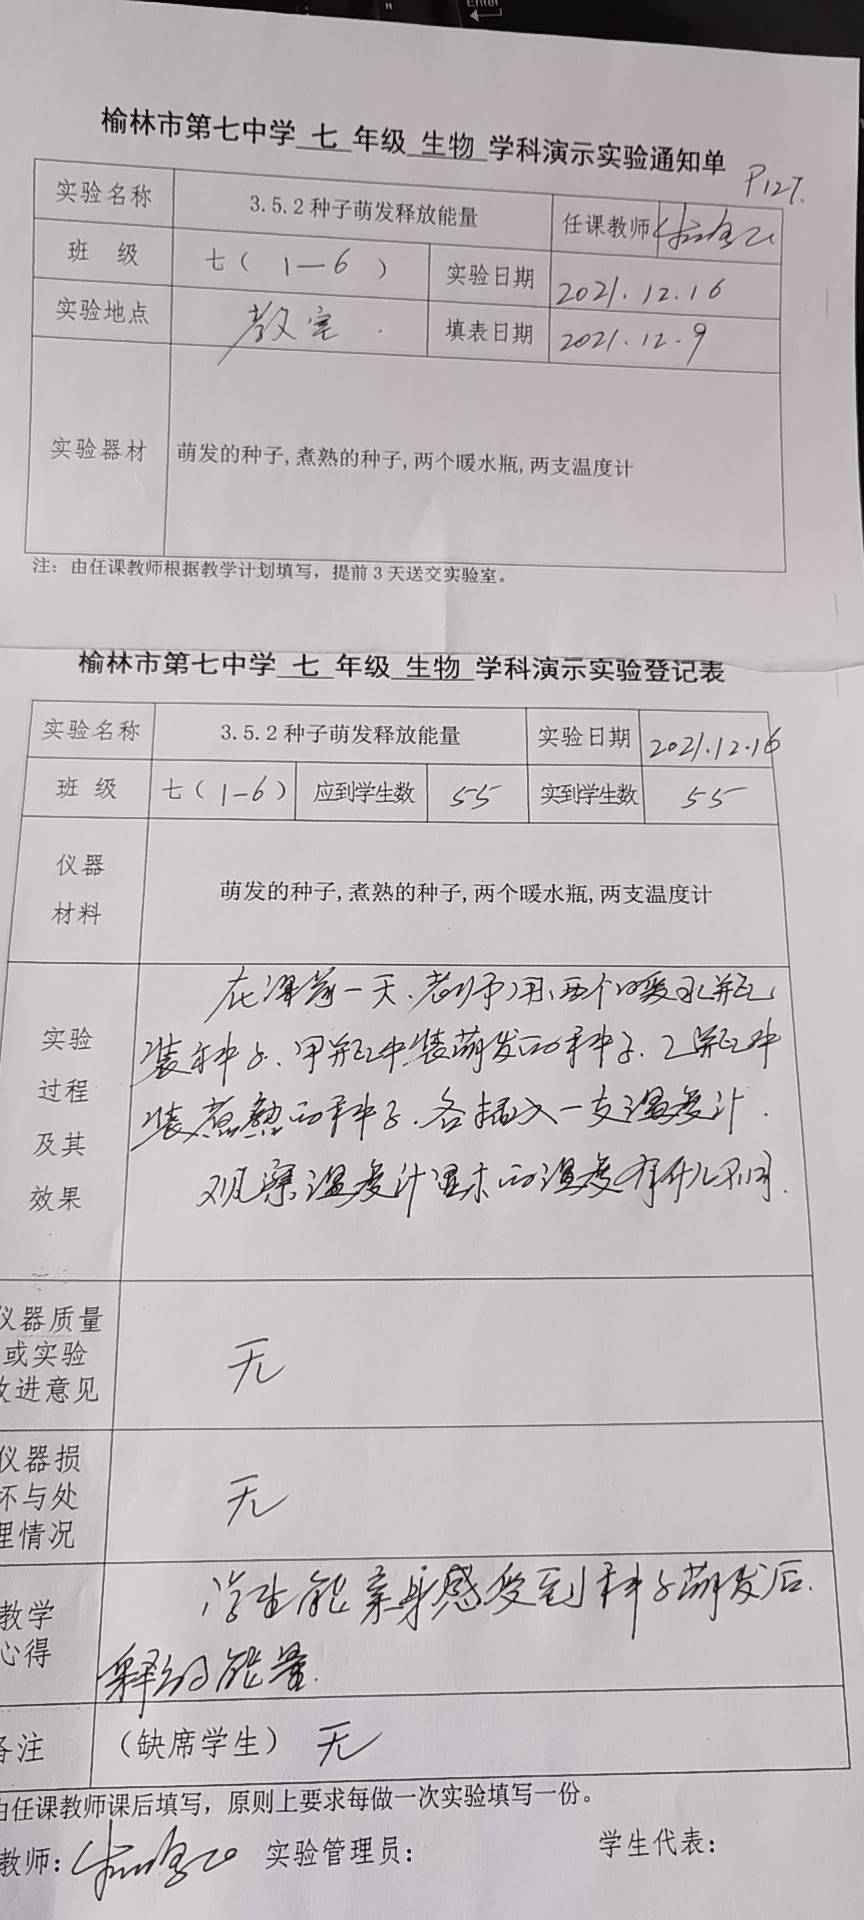 Enter
榆林市第七中学 七 年级 生物 学科演示实验通知单
P127.
实验名称 3.5.2种子萌发释放能量 任课教师
班 级 七( 1—6 ) 实验日期 2021.12.16
实验地点 教室. 填表日期 2021.12.9
实验器材 萌发的种子,煮熟的种子,两个暖水瓶,两支温度计
注：由任课教师根据教学计划填写，提前3天送交实验室。
榆林市第七中学 七 年级 生物 学科演示实验登记表
实验名称 3.5.2种子萌发释放能量 实验日期 2021.12.16
班 级 七( 1-6 ) 应到学生数 55 实到学生数 55
仪器
材料
萌发的种子,煮熟的种子,两个暖水瓶,两支温度计
实验
过程
及其
效果
在课前一天、老师用两个暖水瓶
装种子、甲瓶中装萌发的种子.乙瓶中
装煮熟的种子.各插入一支温度计.
观察温度计显示的温度有什么不同.
仪器质量
或实验
改进意见
无
仪器损
坏与处
理情况
无
教学
心得
学生能亲身感受到种子萌发后.
释放的能量.
备注 （缺席学生） 无
由任课教师课后填写，原则上要求每做一次实验填写一份。
教师: 实验管理员: 学生代表: